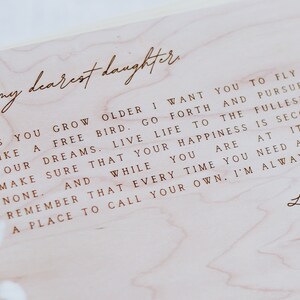 my dearest daughter,
S YOU GROW OLDER I WANT YOU TO FLY
LIKE A FREE BIRD. GO FORTH AND PURSUE
OUR DREAMS. LIVE LIFE TO THE FULLES
MAKE SURE THAT YOUR HAPPINESS IS SEC
NONE. AND WHILE YOU ARE AT I
REMEMBER THAT EVERY TIME YOU NEED A
A PLACE TO CALL YOUR OWN. I'M ALWA
L